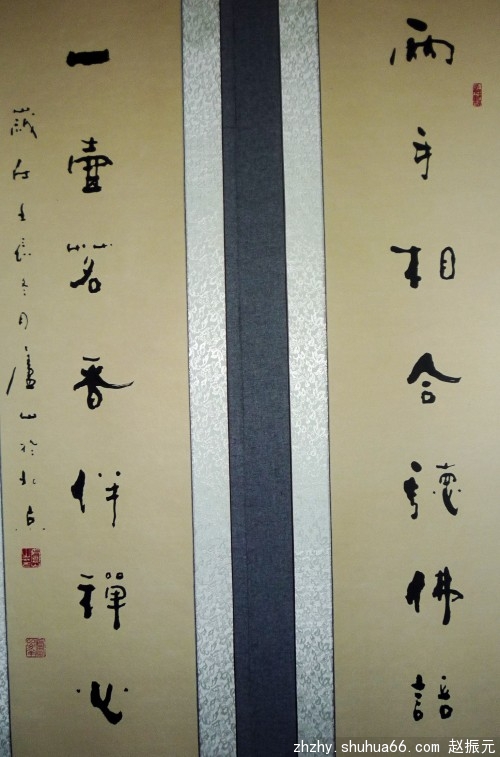 兩手相合聽佛語
一壺茗香伴禪心
歲在壬辰冬月廬山於北京
zhzhy.shuhua66.com 赵振元